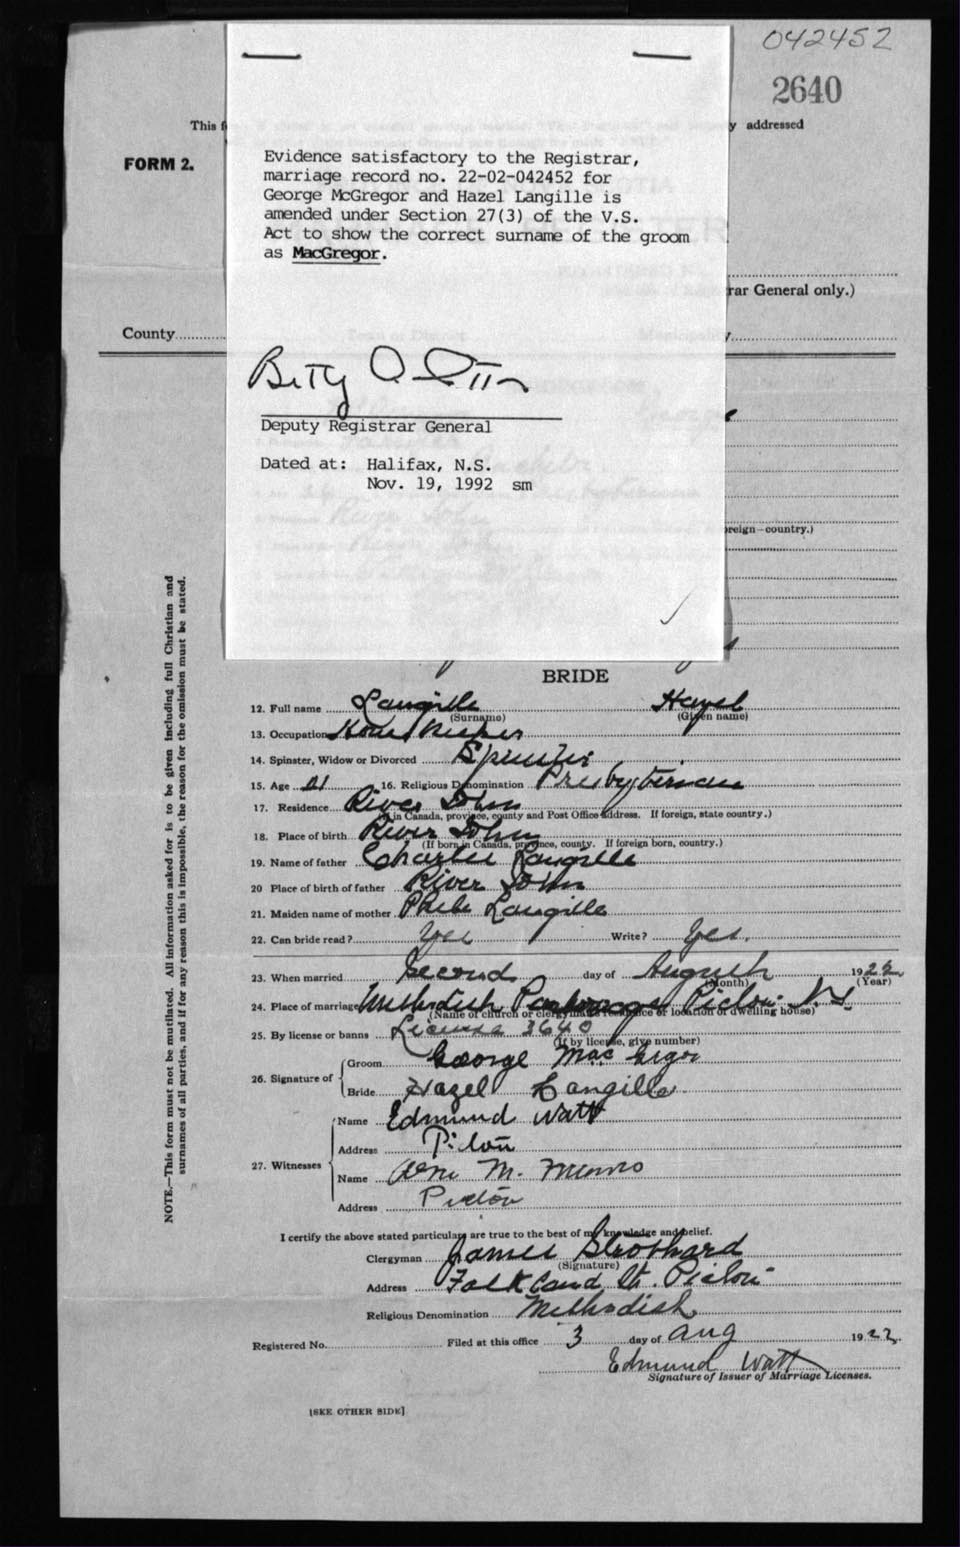 042452
2640
This f
y addressed
FORM 2.
Evidence satisfactory to the Registrar,
marriage record no. 22-02-042452 for
George McGregor and Hazel Langille is
amended under Section 27(3) of the V.S.
Act to show the correct surname of the groom
as MacGregor.
rar General only.)
County
Betty
Deputy Registrar General
Dated at: Halifax, N.S.
Nov. 19, 1992 sm
reign country.)
NOTE.—This form must not be mutilated. All information asked for is to be given including full Christian and
surnames of all parties, and if for any reason this is impossible, the reason for the omission must be stated.
BRIDE
12. Full name Langille Hazel
(Surname) (Given name)
13. Occupation House Keeper
14. Spinster, Widow or Divorced Spinster
15. Age 21 16. Religious Denomination Presbyterian
17. Residence River John
(If in Canada, province, county and Post Office address. If foreign, state country.)
18. Place of birth River John
(If born in Canada, province, county. If foreign born, country.)
19. Name of father Charlie Langille
20 Place of birth of father River John
21. Maiden name of mother Langille
22. Can bride read? Yes Write? Yes.
23. When married Second day of August 1922
(Month) (Year)
24. Place of marriage Methodist Parsonage Pictou N.S.
(Name of church or clergyman's residence or location of dwelling house)
25. By license or banns License 3640
(If by license, give number)
26. Signature of Groom George MacGregor
Bride Hazel Langille
27. Witnesses Name Edmund Watt
Address Pictou
Name M. Munro
Address Pictou
I certify the above stated particulars are true to the best of my knowledge and belief.
Clergyman James Strothard
(Signature)
Address Falkland St. Pictou
Religious Denomination Methodist
Registered No. Filed at this office 3 day of Aug 1922.
Edmund Watt
Signature of Issuer of Marriage Licenses.
[SEE OTHER SIDE]